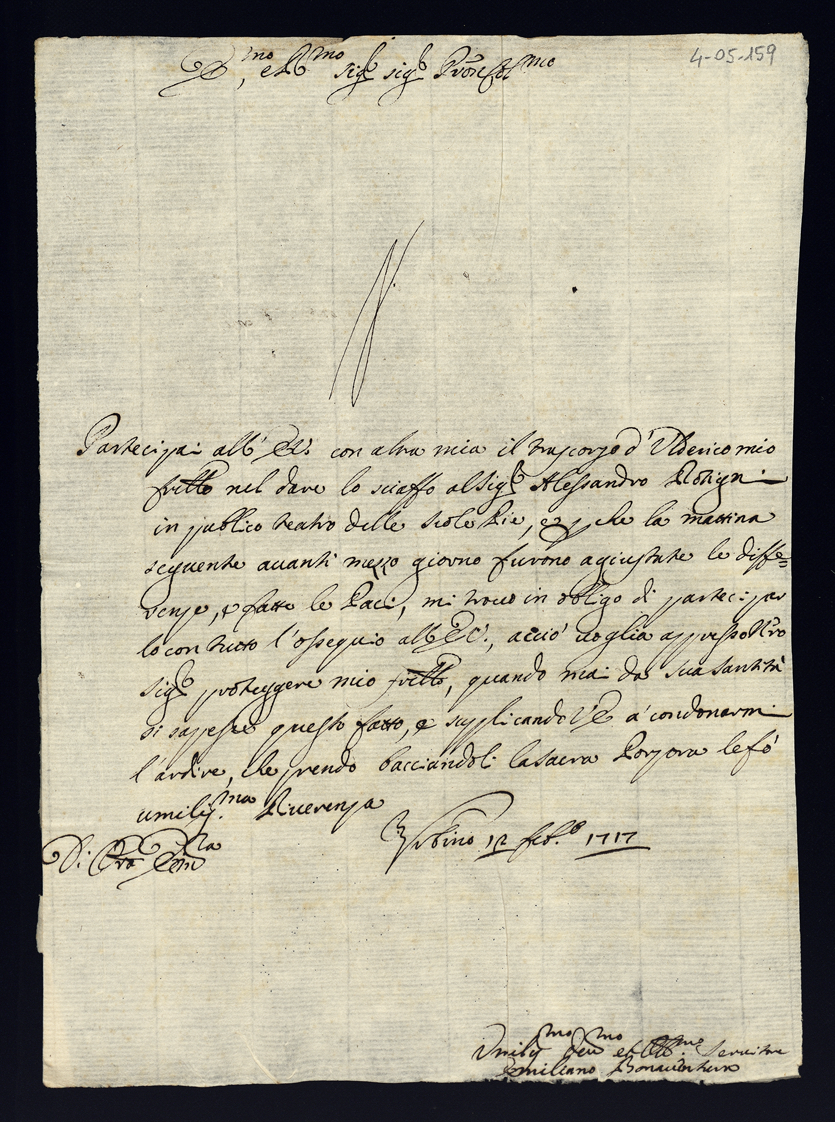 4-05-159
E.mo, e R.mo Sig.r Sig.r P̃rōne Col.mo
Partecipai all' E.V. con altra mia il trascorso d'Ulderico mio
frẽllo nel dare lo sciaffo al Sig.r Alessandro
in publico teatro delle Scole Pie, e che la mattina
seguente auanti mezzo giorno furono agiustate le diffe=
renze, e fatte le Paci, mi trouo in obligo di partecipar
lo con tutto l'ossequio all' E.V., acciò uoglia appresso N̄ro
Sig.r proteggere mio frẽllo, quando mai da Sua Santità
si sapesse questo fatto, e supplicando V.E. à condonarmi
l'ardire, che prendo bacciandoli la Sacra Porpora le fò
umiliss.ma Riuerenza
Urbino 12 feb.o 1717
Di V̄ra Em.za
Umiliss.mo Deu.mo et Obb.mo Seruitore
Emiliano Bonauentura